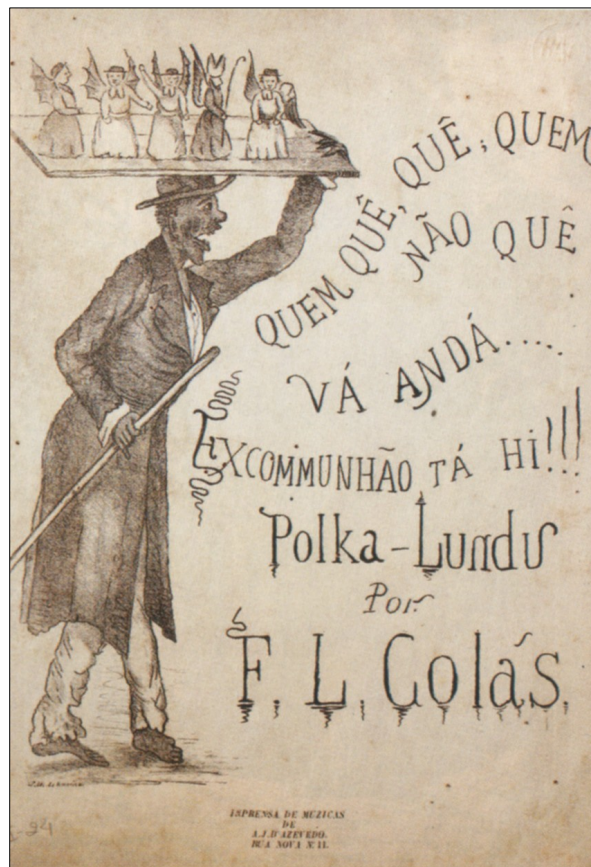 QUEM QUÊ, QUÊ, QUEM
NÃO QUÊ
VÁ ANDÁ.....
EXCOMMUNHÃO TÁ HI!!!
Polka-Lundu
Por
F. L. Colás.
IMPRENSA DE MUZICAS
DE
A.J.D'AZEVEDO.
RUA NOVA Nº 11.
94